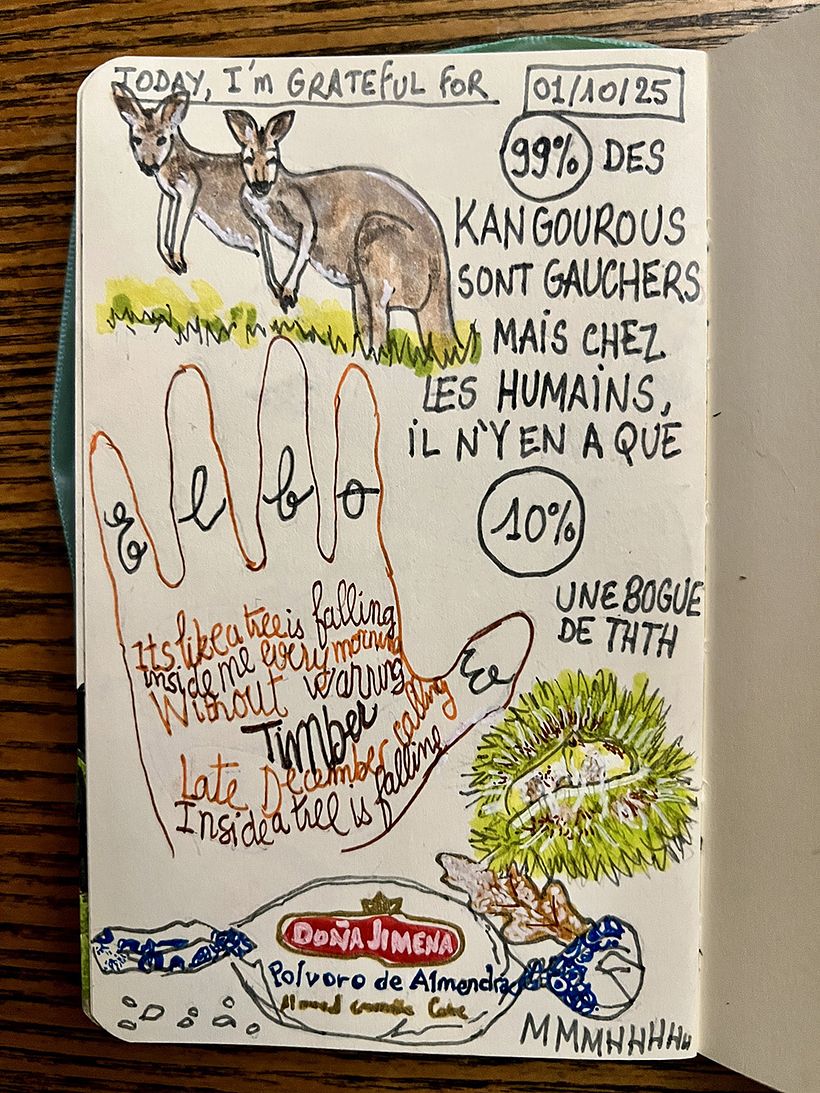 TODAY, I'm GRATEFUL FOR
01/10/25
99% DES
KANGOUROUS
SONT GAUCHERS
MAIS CHEZ
LES HUMAINS,
IL N'Y EN A QUE
10%
e l b o w
Its like a tree is falling
inside me every morning
Without warning
Timber
Late December calling
Inside a tree is falling
UNE BOGUE
DE THTH
DOÑA JIMENA
Polvoro de Almendra
Almond Crumble Cake
MMMHHHHH